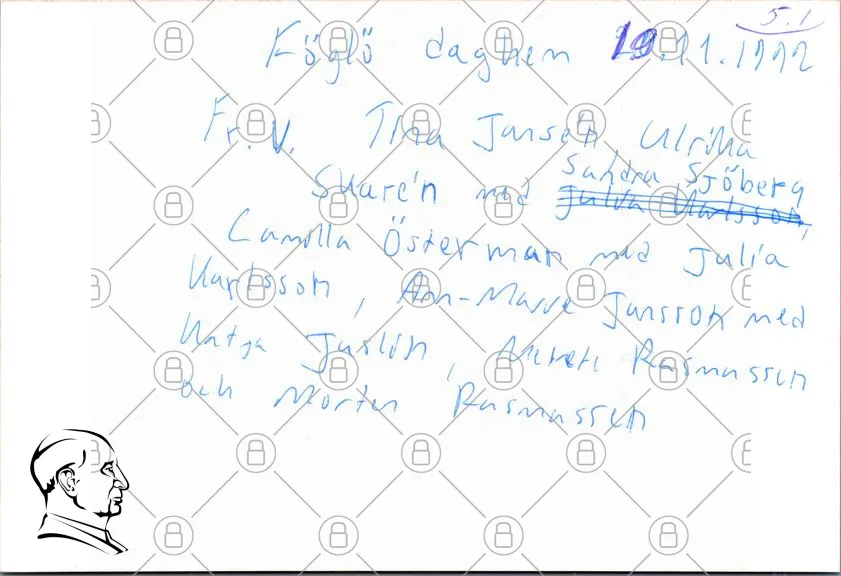 5.1
Föglö daghem 19.11.1992
Fr.V. Tina Jansén, Ulrika
Sandra Sjöberg
Skarén med Julia Karlsson,
Camilla Österman med Julia
Karlsson, Ann-Marie Jansson med
Katja Juslin, Merete Rasmussen
och Morten Rasmussen